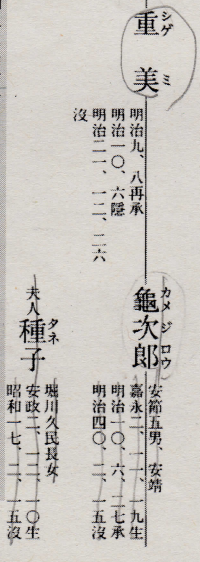 重美
シゲミ
明治九、八再承
明治一〇、六隱
明治二一、一二、二六
沒
龜次郎
カメジロウ
安節五男、安靖
嘉永二、一一、一九生
明治一〇、六、二七承
明治四〇、二、一五沒
夫人
種子
タネ
堀川久民長女
安政二、一二、一〇生
昭和一七、二、一五沒